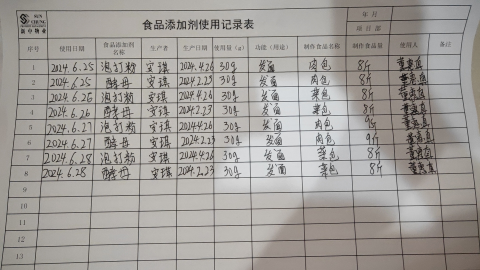 SUN CHUNG
新中物业
食品添加剂使用记录表
年 月
项目部
序号 使用日期 食品添加剂名称 生产者 生产日期 使用量（g） 功能（用途） 制作食品名称 制作食品量 使用人 备注
1 2024.6.25 泡打粉 安琪 2024.4.26 30g 发面 肉包 8斤
2 2024.6.25 酵母 安琪 2024.2.23 30g 发面 肉包 8斤
3 2024.6.26 泡打粉 安琪 2024.4.26 30g 发面 菜包 8斤
4 2024.6.26 酵母 安琪 2024.2.23 30g 发面 菜包 8斤
5 2024.6.27 泡打粉 安琪 2024.4.26 30g 发面 肉包 9斤
6 2024.6.27 酵母 安琪 2024.2.23 30g 发面 肉包 9斤
7 2024.6.28 泡打粉 安琪 2024.4.26 30g 发面 菜包 8斤
8 2024.6.28 酵母 安琪 2024.2.23 30g 发面 菜包 8斤
9
10
11
12
13